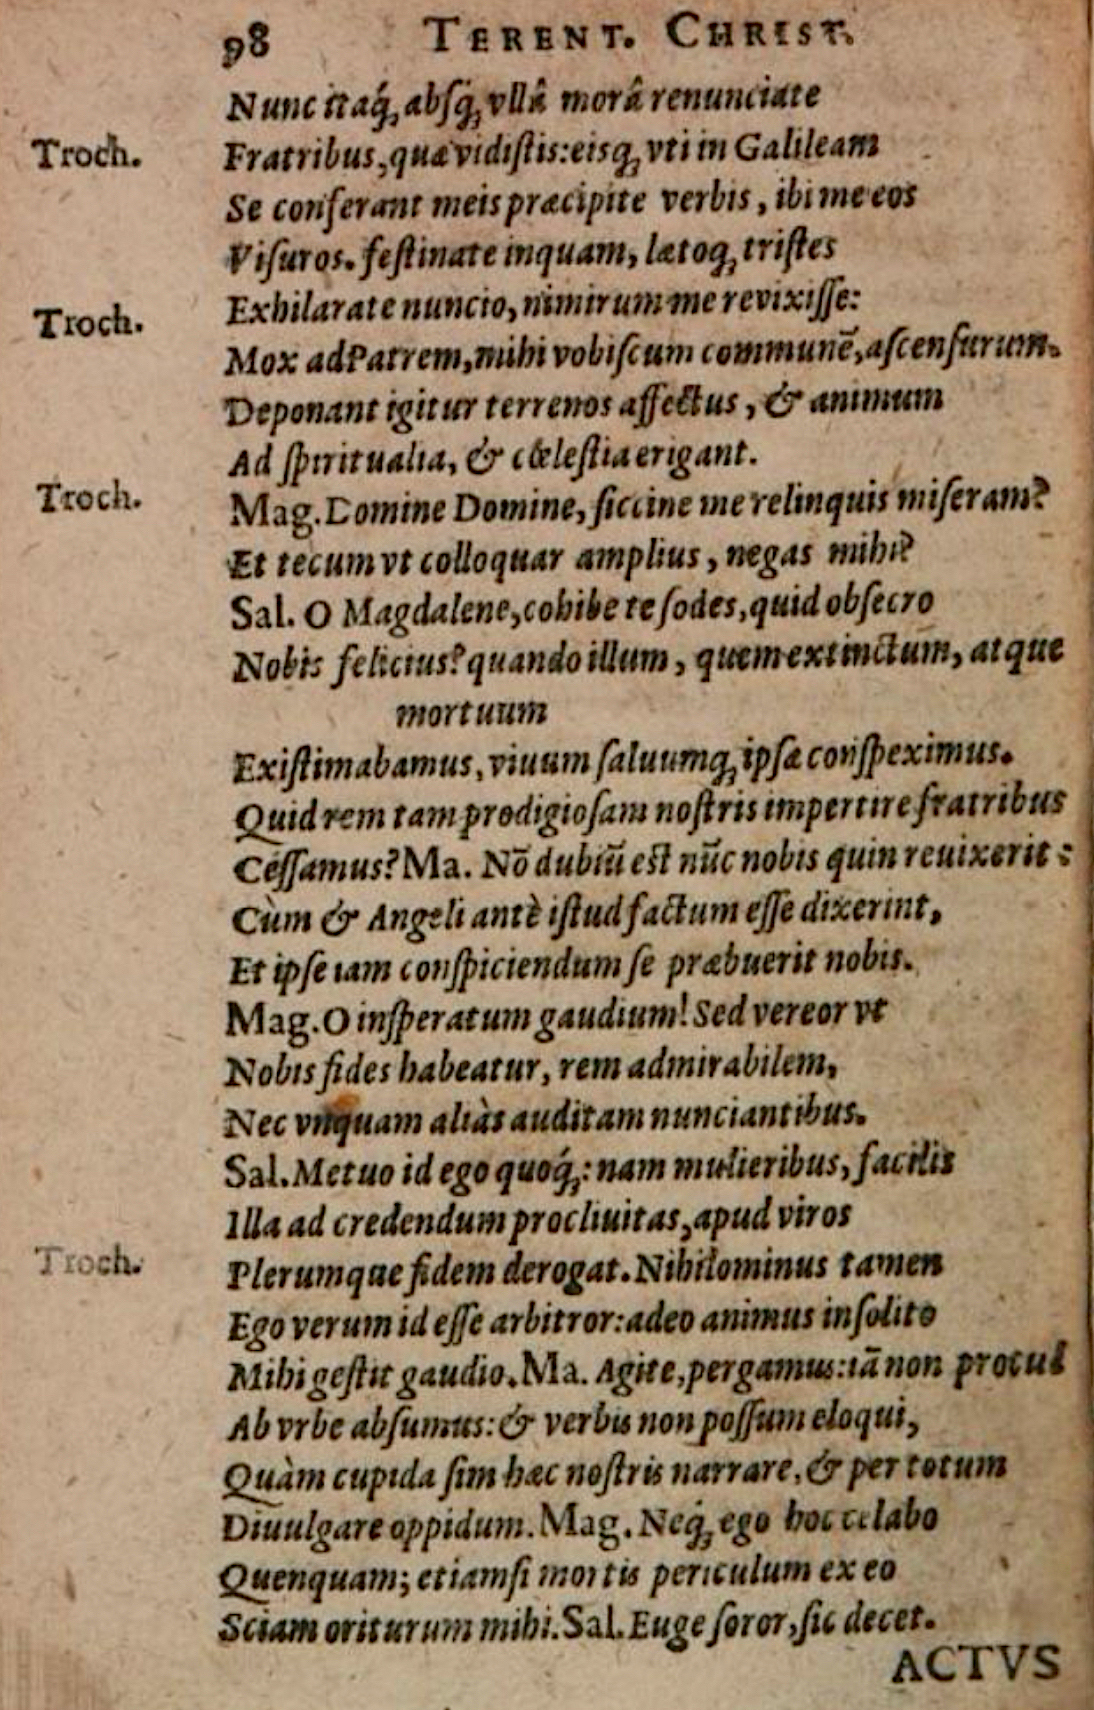 98 TERENT. CHRIST.
Nunc itaq́;, absq́;, vllâ morâ renunciate
Troch. Fratribus, quæ vidiſtis: eisq; vti in Galileam
Se conferant meis præcipite verbis, ibi me eos
Viſuros. feſtinate inquam, lætoq; triſtes
Troch. Exhilarate nuncio, nimirum me revixiſſe:
Mox ad Patrem, mihi vobiſcum communē, aſcenſurum.
Deponant igitur terrenos affectus, & animum
Ad ſpiritualia, & cœleſtia erigant.
Troch. Mag. Domine Domine, ſiccine me relinquis miſeram?
Et tecum vt colloquar amplius, negas mihi?
Sal. O Magdalene, cohibe te ſodes, quid obſecro
Nobis felicius? quando illum, quem extinctum, atque
mortuum
Exiſtimabamus, viuum ſaluumq; ipſæ conſpeximus.
Quid rem tam prodigioſam noſtris impertire fratribus
Ceſſamus? Ma. Nō dubiū est nūc nobis quin reuixerit:
Cùm & Angeli antè iſtud factum eſſe dixerint,
Et ipſe iam conſpiciendum ſe præbuerit nobis.
Mag. O inſperatum gaudium! Sed vereor vt
Nobis fides habeatur, rem admirabilem,
Nec vnquam aliàs auditam nunciantibus.
Sal. Metuo id ego quoq́;: nam mulieribus, facilis
Illa ad credendum procliuitas, apud viros
Troch. Plerumque fidem derogat. Nihilominus tamen
Ego verum id eſſe arbitror: adeo animus inſolito
Mihi geſtit gaudio. Ma. Agite, pergamus: iā non procul
Ab vrbe abſumus: & verbis non poſſum eloqui,
Quàm cupida ſim hæc noſtris narrare, & per totum
Diuulgare oppidum. Mag. Neq́; ego hoc celabo
Quenquam; etiamſi mortis periculum ex eo
Sciam oriturum mihi. Sal. Euge ſoror, ſic decet.
ACTVS